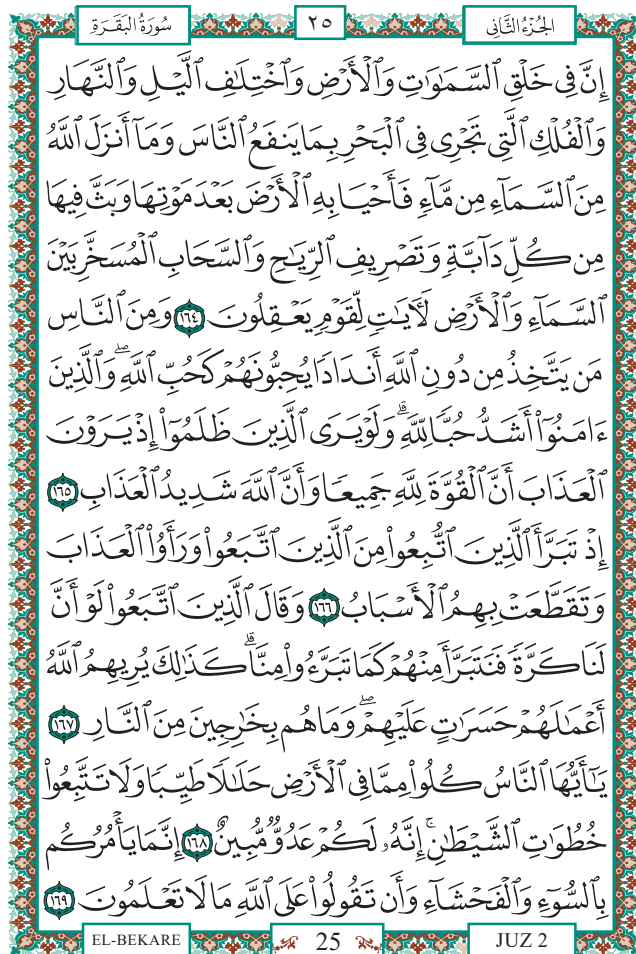 سُورَةُ البَقَرَةِ ٢٥ الجُزْءُ الثَّانِي
إِنَّ فِي خَلْقِ ٱلسَّمَٰوَٰتِ وَٱلْأَرْضِ وَٱخْتِلَٰفِ ٱلَّيْلِ وَٱلنَّهَارِ
وَٱلْفُلْكِ ٱلَّتِي تَجْرِي فِي ٱلْبَحْرِ بِمَا يَنفَعُ ٱلنَّاسَ وَمَآ أَنزَلَ ٱللَّهُ
مِنَ ٱلسَّمَآءِ مِن مَّآءٍ فَأَحْيَا بِهِ ٱلْأَرْضَ بَعْدَ مَوْتِهَا وَبَثَّ فِيهَا
مِن كُلِّ دَآبَّةٍ وَتَصْرِيفِ ٱلرِّيَٰحِ وَٱلسَّحَابِ ٱلْمُسَخَّرِ بَيْنَ
ٱلسَّمَآءِ وَٱلْأَرْضِ لَأٓيَٰتٍ لِّقَوْمٍ يَعْقِلُونَ ١٦٤ وَمِنَ ٱلنَّاسِ
مَن يَتَّخِذُ مِن دُونِ ٱللَّهِ أَندَادًا يُحِبُّونَهُمْ كَحُبِّ ٱللَّهِۖ وَٱلَّذِينَ
ءَامَنُوٓا۟ أَشَدُّ حُبًّا لِّلَّهِۗ وَلَوْ يَرَى ٱلَّذِينَ ظَلَمُوٓا۟ إِذْ يَرَوْنَ
ٱلْعَذَابَ أَنَّ ٱلْقُوَّةَ لِلَّهِ جَمِيعًا وَأَنَّ ٱللَّهَ شَدِيدُ ٱلْعَذَابِ ١٦٥
إِذْ تَبَرَّأَ ٱلَّذِينَ ٱتُّبِعُوا۟ مِنَ ٱلَّذِينَ ٱتَّبَعُوا۟ وَرَأَوُا۟ ٱلْعَذَابَ
وَتَقَطَّعَتْ بِهِمُ ٱلْأَسْبَابُ ١٦٦ وَقَالَ ٱلَّذِينَ ٱتَّبَعُوا۟ لَوْ أَنَّ
لَنَا كَرَّةً فَنَتَبَرَّأَ مِنْهُمْ كَمَا تَبَرَّءُوا۟ مِنَّاۗ كَذَٰلِكَ يُرِيهِمُ ٱللَّهُ
أَعْمَٰلَهُمْ حَسَرَٰتٍ عَلَيْهِمْۖ وَمَا هُم بِخَٰرِجِينَ مِنَ ٱلنَّارِ ١٦٧
يَٰٓأَيُّهَا ٱلنَّاسُ كُلُوا۟ مِمَّا فِي ٱلْأَرْضِ حَلَٰلًا طَيِّبًا وَلَا تَتَّبِعُوا۟
خُطُوَٰتِ ٱلشَّيْطَٰنِۚ إِنَّهُۥ لَكُمْ عَدُوٌّ مُّبِينٌ ١٦٨ إِنَّمَا يَأْمُرُكُم
بِٱلسُّوٓءِ وَٱلْفَحْشَآءِ وَأَن تَقُولُوا۟ عَلَى ٱللَّهِ مَا لَا تَعْلَمُونَ ١٦٩
EL-BEKARE 25 JUZ 2